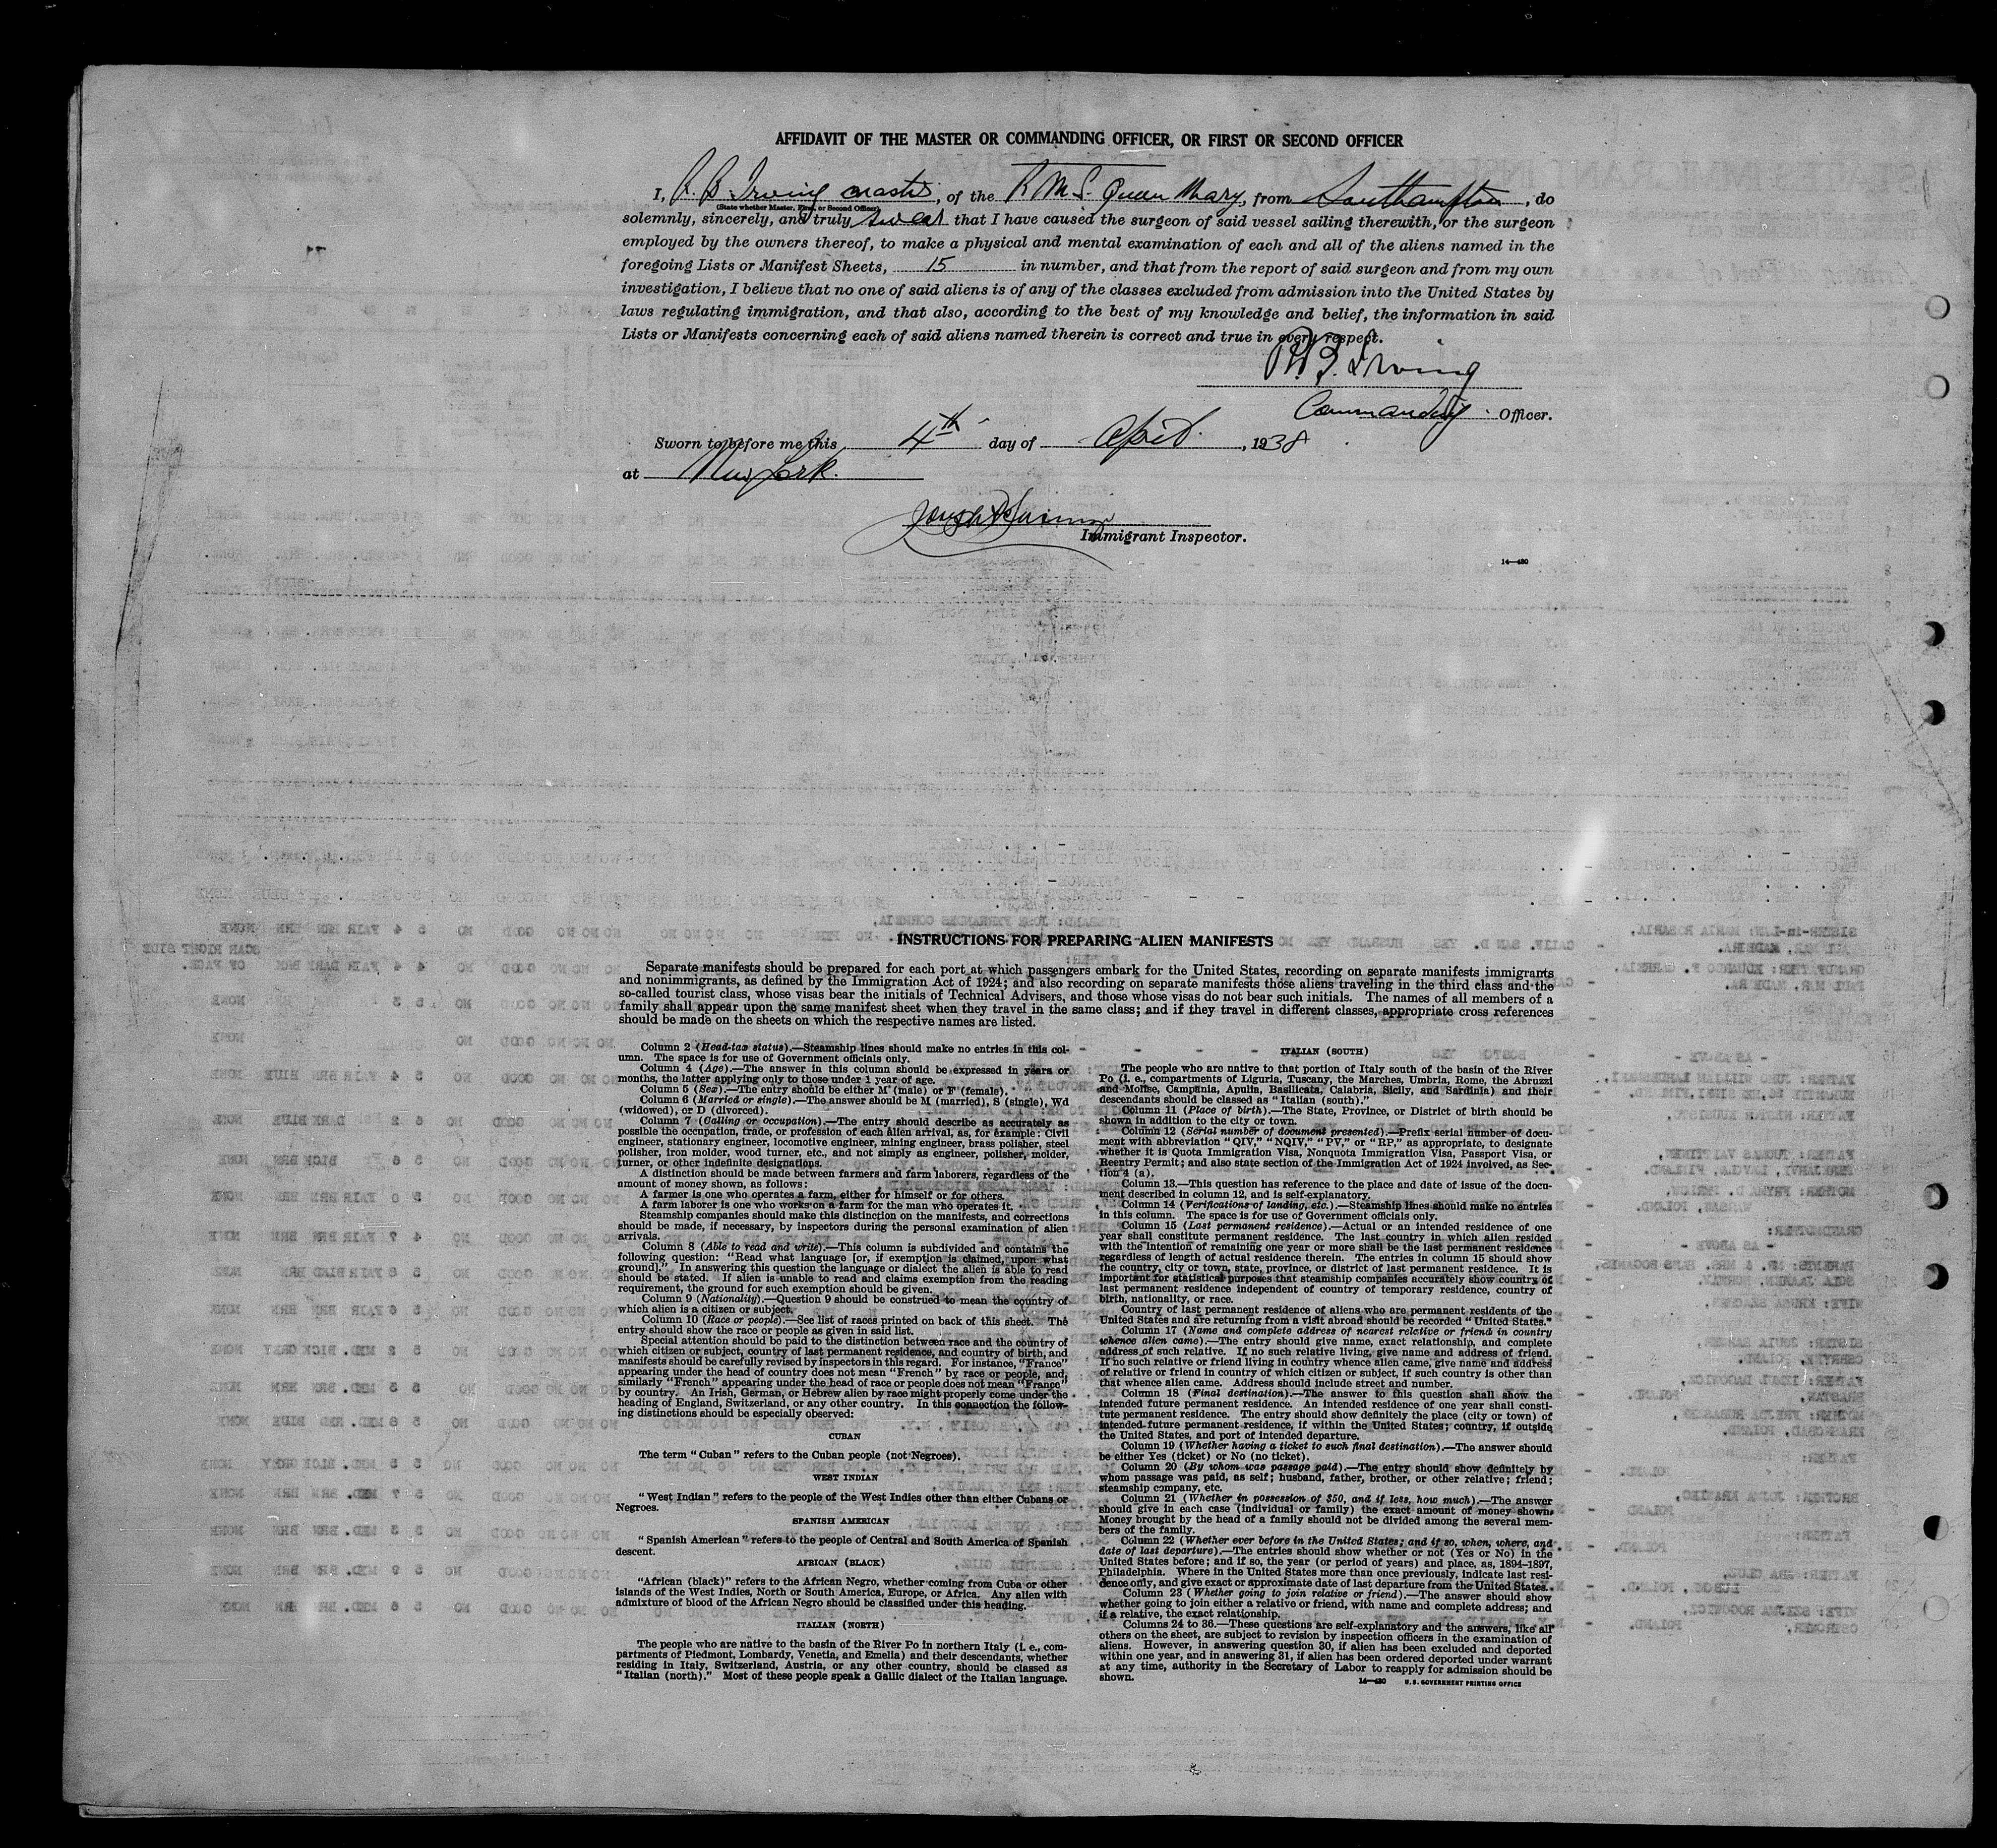 AFFIDAVIT OF THE MASTER OR COMMANDING OFFICER, OR FIRST OR SECOND OFFICER
I, R. B. Irving master, of the R.M.S. Queen Mary, from Southampton, do
(State whether Master, First, or Second Officer)
solemnly, sincerely, and truly swear that I have caused the surgeon of said vessel sailing therewith, or the surgeon
employed by the owners thereof, to make a physical and mental examination of each and all of the aliens named in the
foregoing Lists or Manifest Sheets, 15 in number, and that from the report of said surgeon and from my own
investigation, I believe that no one of said aliens is of any of the classes excluded from admission into the United States by
laws regulating immigration, and that also, according to the best of my knowledge and belief, the information in said
Lists or Manifests concerning each of said aliens named therein is correct and true in every respect.
R.B. Irving
Commanding Officer.
Sworn to before me this 4th day of April, 1938
at New York.
Immigrant Inspector.
14—430
INSTRUCTIONS FOR PREPARING ALIEN MANIFESTS
Separate manifests should be prepared for each port at which passengers embark for the United States, recording on separate manifests immigrants
and nonimmigrants, as defined by the Immigration Act of 1924; and also recording on separate manifests those aliens traveling in the third class and the
so-called tourist class, whose visas bear the initials of Technical Advisers, and those whose visas do not bear such initials. The names of all members of a
family shall appear upon the same manifest sheet when they travel in the same class; and if they travel in different classes, appropriate cross references
should be made on the sheets on which the respective names are listed.
Column 2 (Head-tax status).—Steamship lines should make no entries in this col-
umn. The space is for use of Government officials only.
Column 4 (Age).—The answer in this column should be expressed in years or
months, the latter applying only to those under 1 year of age.
Column 5 (Sex).—The entry should be either M (male) or F (female).
Column 6 (Married or single).—The answer should be M (married), S (single), Wd
(widowed), or D (divorced).
Column 7 (Calling or occupation).—The entry should describe as accurately as
possible the occupation, trade, or profession of each alien arrival, as, for example: Civil
engineer, stationary engineer, locomotive engineer, mining engineer, brass polisher, steel
polisher, iron molder, wood turner, etc., and not simply as engineer, polisher, molder,
turner, or other indefinite designations.
A distinction should be made between farmers and farm laborers, regardless of the
amount of money shown, as follows:
A farmer is one who operates a farm, either for himself or for others.
A farm laborer is one who works on a farm for the man who operates it.
Steamship companies should make this distinction on the manifests, and corrections
should be made, if necessary, by inspectors during the personal examination of alien
arrivals.
Column 8 (Able to read and write).—This column is subdivided and contains the
following question: "Read what language [or, if exemption is claimed, upon what
ground]." In answering this question the language or dialect the alien is able to read
should be stated. If alien is unable to read and claims exemption from the reading
requirement, the ground for such exemption should be given.
Column 9 (Nationality).—Question 9 should be construed to mean the country of
which alien is a citizen or subject.
Column 10 (Race or people).—See list of races printed on back of this sheet. The
entry should show the race or people as given in said list.
Special attention should be paid to the distinction between race and the country of
which citizen or subject, country of last permanent residence, and country of birth, and
manifests should be carefully revised by inspectors in this regard. For instance, "France"
appearing under the head of country does not mean "French" by race or people, and,
similarly "French" appearing under the head of race or people does not mean "France",
by country. An Irish, German, or Hebrew alien by race might properly come under the
heading of England, Switzerland, or any other country. In this connection the follow-
ing distinctions should be especially observed:
CUBAN
The term "Cuban" refers to the Cuban people (not Negroes).
WEST INDIAN
"West Indian" refers to the people of the West Indies other than either Cubans or
Negroes.
SPANISH AMERICAN
"Spanish American" refers to the people of Central and South America of Spanish
descent.
AFRICAN (BLACK)
"African (black)" refers to the African Negro, whether coming from Cuba or other
islands of the West Indies, North or South America, Europe, or Africa. Any alien with
admixture of blood of the African Negro should be classified under this heading.
ITALIAN (NORTH)
The people who are native to the basin of the River Po in northern Italy (i. e., com-
partments of Piedmont, Lombardy, Venetia, and Emelia) and their descendants, whether
residing in Italy, Switzerland, Austria, or any other country, should be classed as
"Italian (north)." Most of these people speak a Gallic dialect of the Italian language.
ITALIAN (SOUTH)
The people who are native to that portion of Italy south of the basin of the River
Po (i. e., compartments of Liguria, Tuscany, the Marches, Umbria, Rome, the Abruzzi
and Molise, Campania, Apulia, Basilicata, Calabria, Sicily, and Sardinia) and their
descendants should be classed as "Italian (south)."
Column 11 (Place of birth).—The State, Province, or District of birth should be
shown in addition to the city or town.
Column 12 (Serial number of document presented).—Prefix serial number of docu-
ment with abbreviation "QIV," "NQIV," "PV," or "RP," as appropriate, to designate
whether it is Quota Immigration Visa, Nonquota Immigration Visa, Passport Visa, or
Reentry Permit; and also state section of the Immigration Act of 1924 involved, as Sec-
tion 4 (a).
Column 13.—This question has reference to the place and date of issue of the docu-
ment described in column 12, and is self-explanatory.
Column 14 (Verifications of landing, etc.).—Steamship lines should make no entries
in this column. The space is for use of Government officials only.
Column 15 (Last permanent residence).—Actual or an intended residence of one
year shall constitute permanent residence. The last country in which alien resided
with the intention of remaining one year or more shall be the last permanent residence
regardless of length of actual residence therein. The entries in column 15 should show
the country, city or town, state, province, or district of last permanent residence. It is
important for statistical purposes that steamship companies accurately show country of
last permanent residence independent of country of temporary residence, country of
birth, nationality, or race.
Country of last permanent residence of aliens who are permanent residents of the
United States and are returning from a visit abroad should be recorded "United States."
Column 17 (Name and complete address of nearest relative or friend in country
whence alien came).—The entry should give name, exact relationship, and complete
address of such relative. If no such relative living, give name and address of friend.
If no such relative or friend living in country whence alien came, give name and address
of relative or friend in country of which citizen or subject, if such country is other than
that whence alien came. Address should include street and number.
Column 18 (Final destination).—The answer to this question shall show the
intended future permanent residence. An intended residence of one year shall consti-
tute permanent residence. The entry should show definitely the place (city or town) of
intended future permanent residence, if within the United States; country, if outside
the United States, and port of intended departure.
Column 19 (Whether having a ticket to such final destination).—The answer should
be either Yes (ticket) or No (no ticket).
Column 20 (By whom was passage paid).—The entry should show definitely by
whom passage was paid, as self; husband, father, brother, or other relative; friend;
steamship company, etc.
Column 21 (Whether in possession of $50, and if less, how much).—The answer
should give in each case (individual or family) the exact amount of money shown.
Money brought by the head of a family should not be divided among the several mem-
bers of the family.
Column 22 (Whether ever before in the United States; and if so, when, where, and
date of last departure).—The entries should show whether or not (Yes or No) in the
United States before; and if so, the year (or period of years) and place, as, 1894–1897,
Philadelphia. Where in the United States more than once previously, indicate last resi-
dence only, and give exact or approximate date of last departure from the United States.
Column 23 (Whether going to join relative or friend).—The answer should show
whether going to join either a relative or friend, with name and complete address; and
if a relative, the exact relationship.
Columns 24 to 36.—These questions are self-explanatory and the answers, like all
others on the sheet, are subject to revision by inspection officers in the examination of
aliens. However, in answering question 30, if alien has been excluded and deported
within one year, and in answering 31, if alien has been ordered deported under warrant
at any time, authority in the Secretary of Labor to reapply for admission should be
shown.
14—430 U. S. GOVERNMENT PRINTING OFFICE